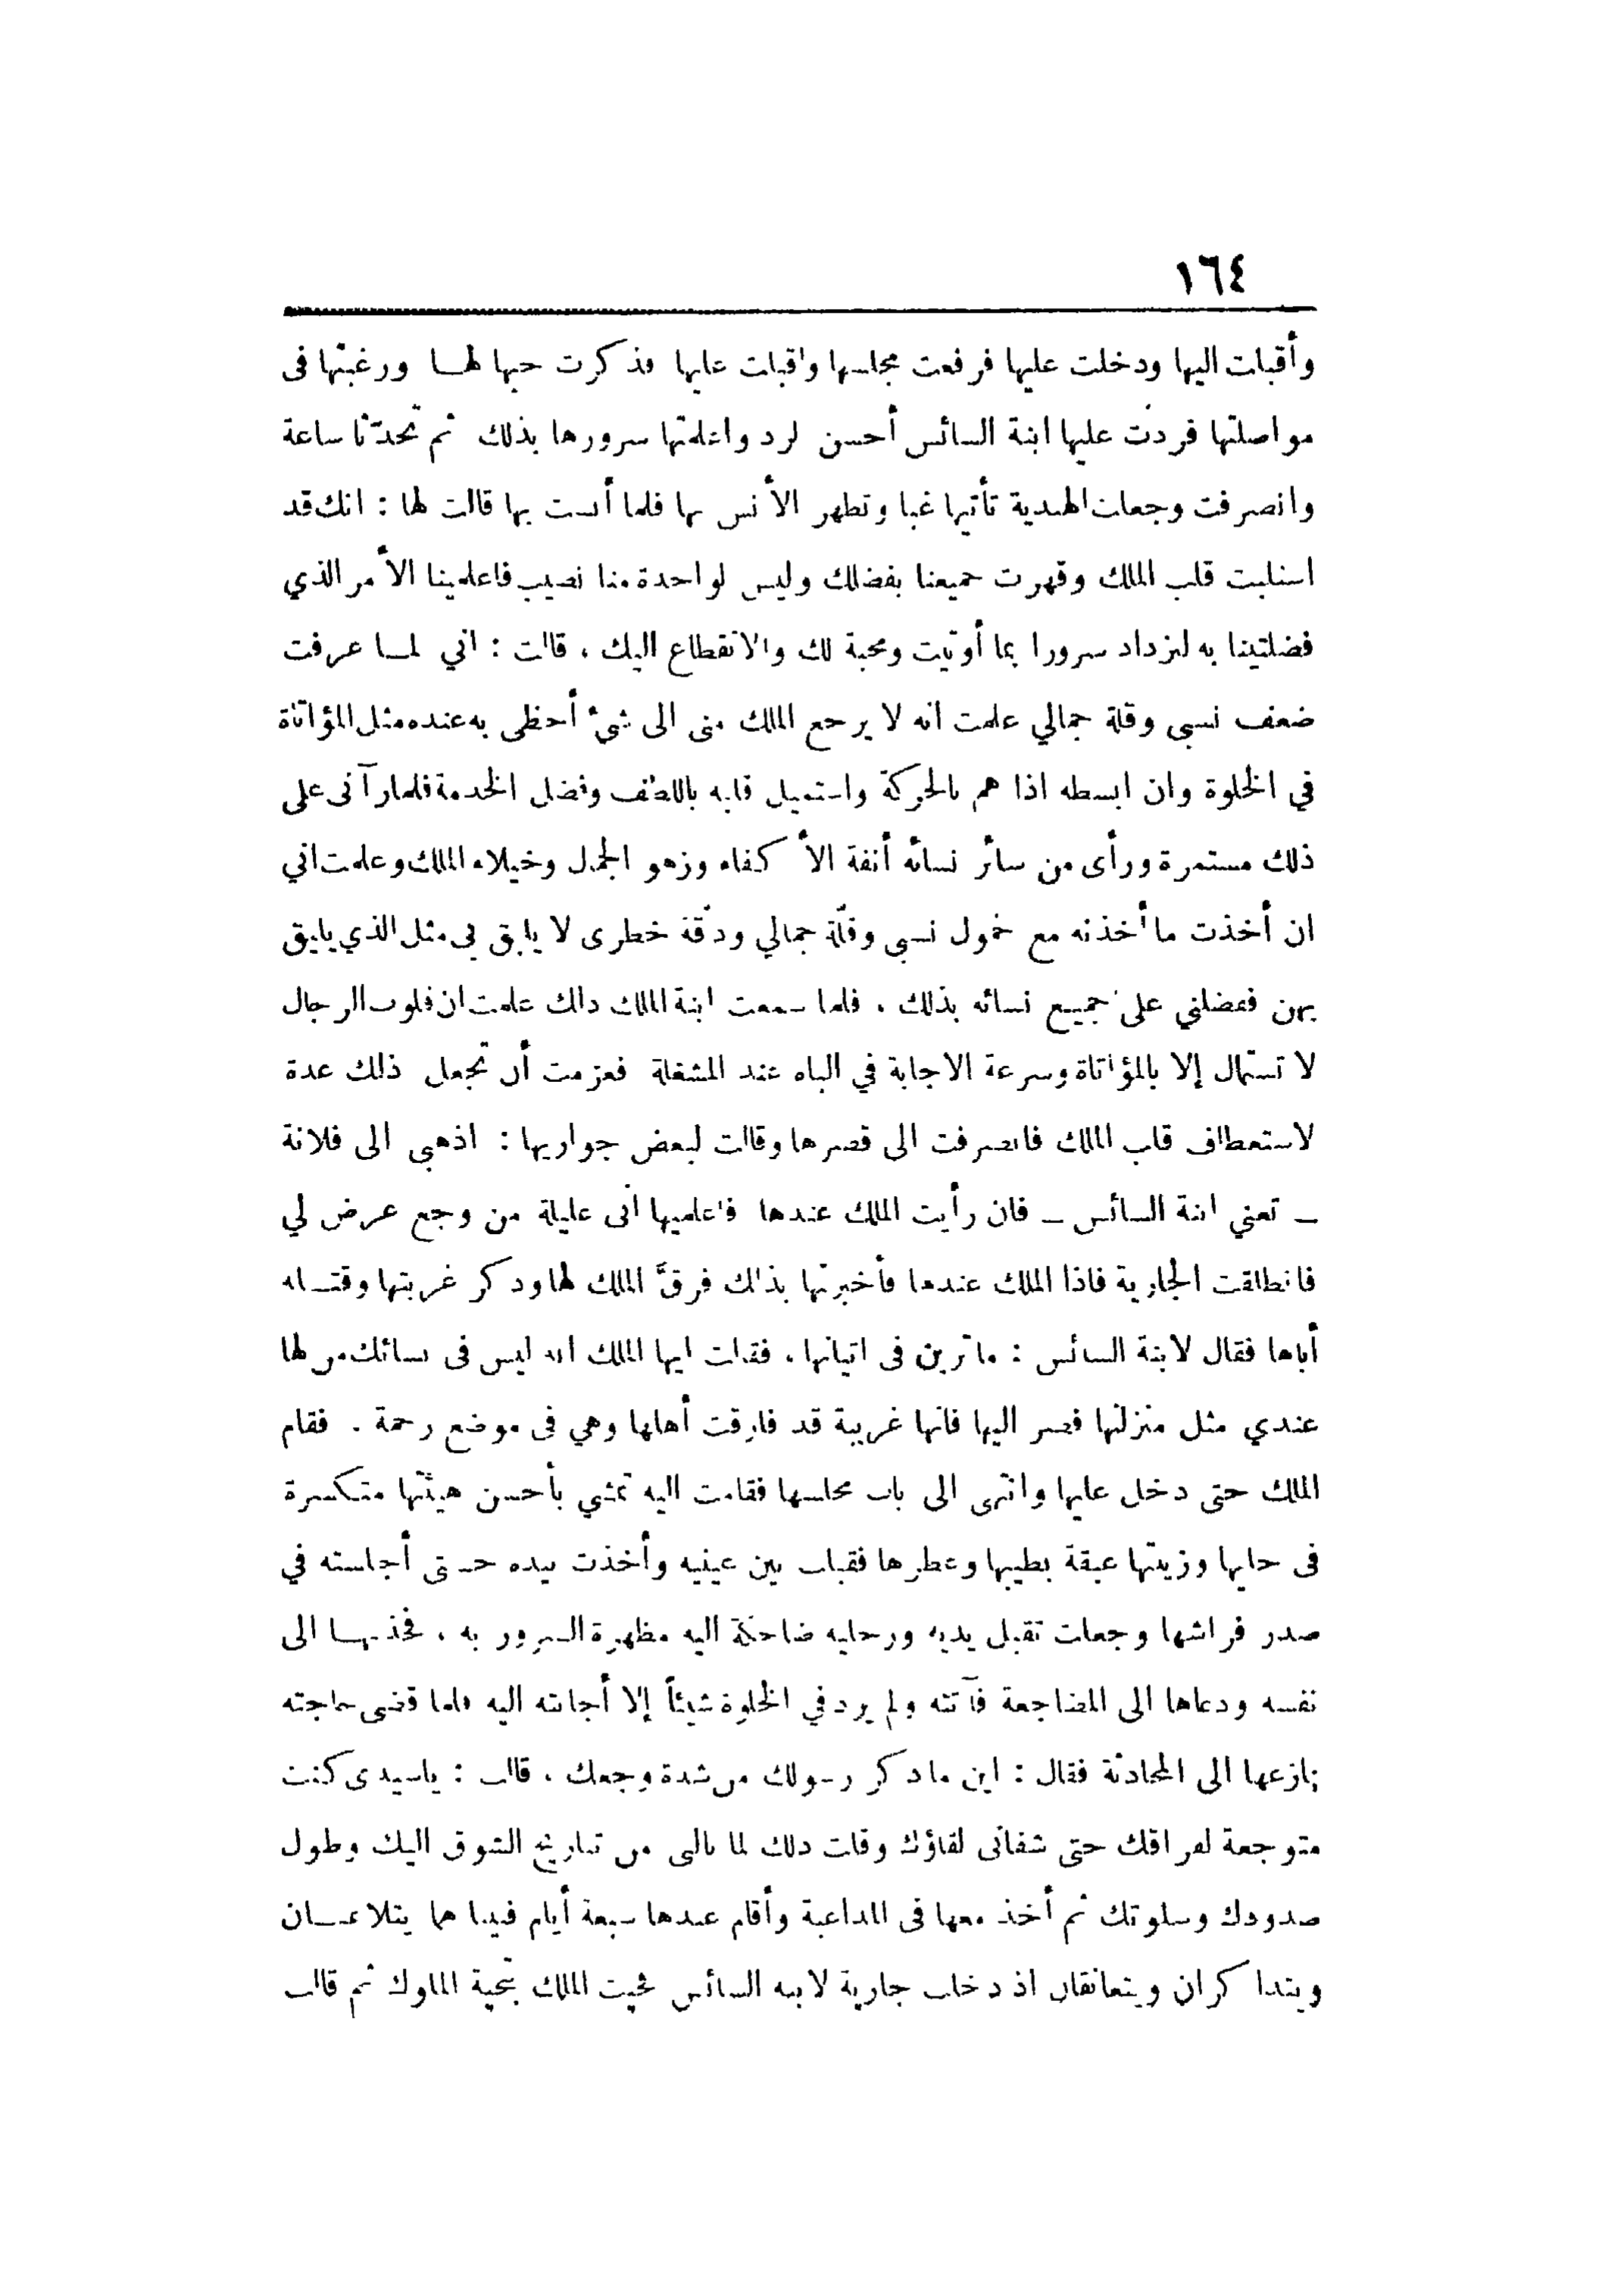 ١٦٤
وأقبلت اليها ودخلت عليها فرفعت مجلسها وأقبلت عليها فذكرت حبها لهـا ورغبتها فى
مواصلتها فردت عليها ابنة السائس أحسن لرد واعلمتها سرورها بذلك ثم تحدّثا ساعة
وانصرفت وجعلت الهندية تأتيها غبا وتظهر الأنس بها فلما أنست بها قالت لها : انك قد
استلبت قلب الملك وقهرت جميعنا بفضلك وليس لواحدة منا نصيب فاعلمينا الأمر الذي
فضلتينا به لنزداد سرورا بما أوتيت ومحبة لك والانقطاع اليك ، قالت : اني لمـا عرفت
ضعف نسبى وقلة جمالي علمت انه لا يرجع الملك منى الى شئ أحظى به عنده مثل المؤاتاة
في الخلوة وان ابسطه اذا هم بالحركة واستميل قلبه باللطف وفضل الخدمة فلما رآنى على
ذلك مستمرة ورأى من سائر نسائه أنفة الأكفاء وزهو الجمال وخيلاء الملك وعلمت اني
ان أخذت ما أخذنه مع خمول نسبى وقلّة جمالي ودقّة خطرى لا يليق بى مثل الذي يليق
بهن ففضلني على جميع نسائه بذلك ، فلما سمعت ابنة الملك ذلك علمت ان قلوب الرجال
لا تستمال إلا بالمؤاتاة وسرعة الاجابة في الباه عند المشغلة فعزمت أن تجعل ذلك عدة
لاستعطاف قلب الملك فانصرفت الى قصرها وقالت لبعض جواريها : اذهبى الى فلانة
ـ تعني ابنة السائس ـ فان رأيت الملك عندها فاعلميها أنى عليلة من وجع عرض لي
فانطلقت الجارية فاذا الملك عندها فأخبرتها بذلك فرقَّ الملك لها وذكر غربتها وقتـله
أباها فقال لابنة السائس : ما ترين فى اتيانها ، فقالت ايها الملك انه ليس فى نسائك من لها
عندي مثل منزلتها فصر اليها فانها غريبة قد فارقت أهلها وهي فى موضع رحمة . فقام
الملك حتى دخل عليها وانتهى الى باب مجلسها فقامت اليه تمشي بأحسن هيئتها متكسرة
فى حليها وزينتها عبقة بطيبها وعطرها فقبلت بين عينيه وأخذت بيده حـتى أجلسته في
صدر فراشها وجعلت تقبل يديه ورجليه ضاحكة اليه مظهرة السرور به ، فجذبهـا الى
نفسه ودعاها الى المضاجعة فآتته ولم يرد في الخلوة شيئاً إلا أجابته اليه فلما قضى حاجته
نازعها الى المحادثة فقال : اين ما ذكر رسولك من شدة وجعك ، قالت : يا سيدى كنت
متوجعة لفراقك حتى شفانى لقاؤك وقلت ذلك لما نالنى من تباريح الشوق اليك وطول
صدودك وسلوتك ثم أخذ معها فى المداعبة وأقام عندها سبعة أيام فبينا هما يتلاعبـان
ويتذاكران ويتعانقان اذ دخلت جارية لابنة السائس فحيت الملك بتحية الملوك ثم قالت